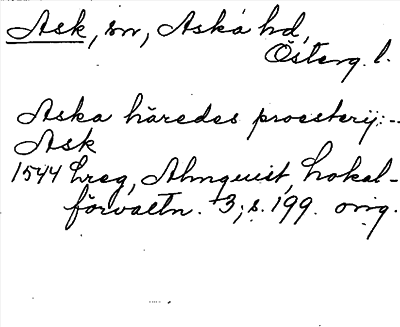 Ask, sn, Aska hd,
Österg. l.
Aska häredes proesterij:-
Ask
1544 Lreg, Almquist, Lokal-
förvaltn. 3, s. 199. orig.